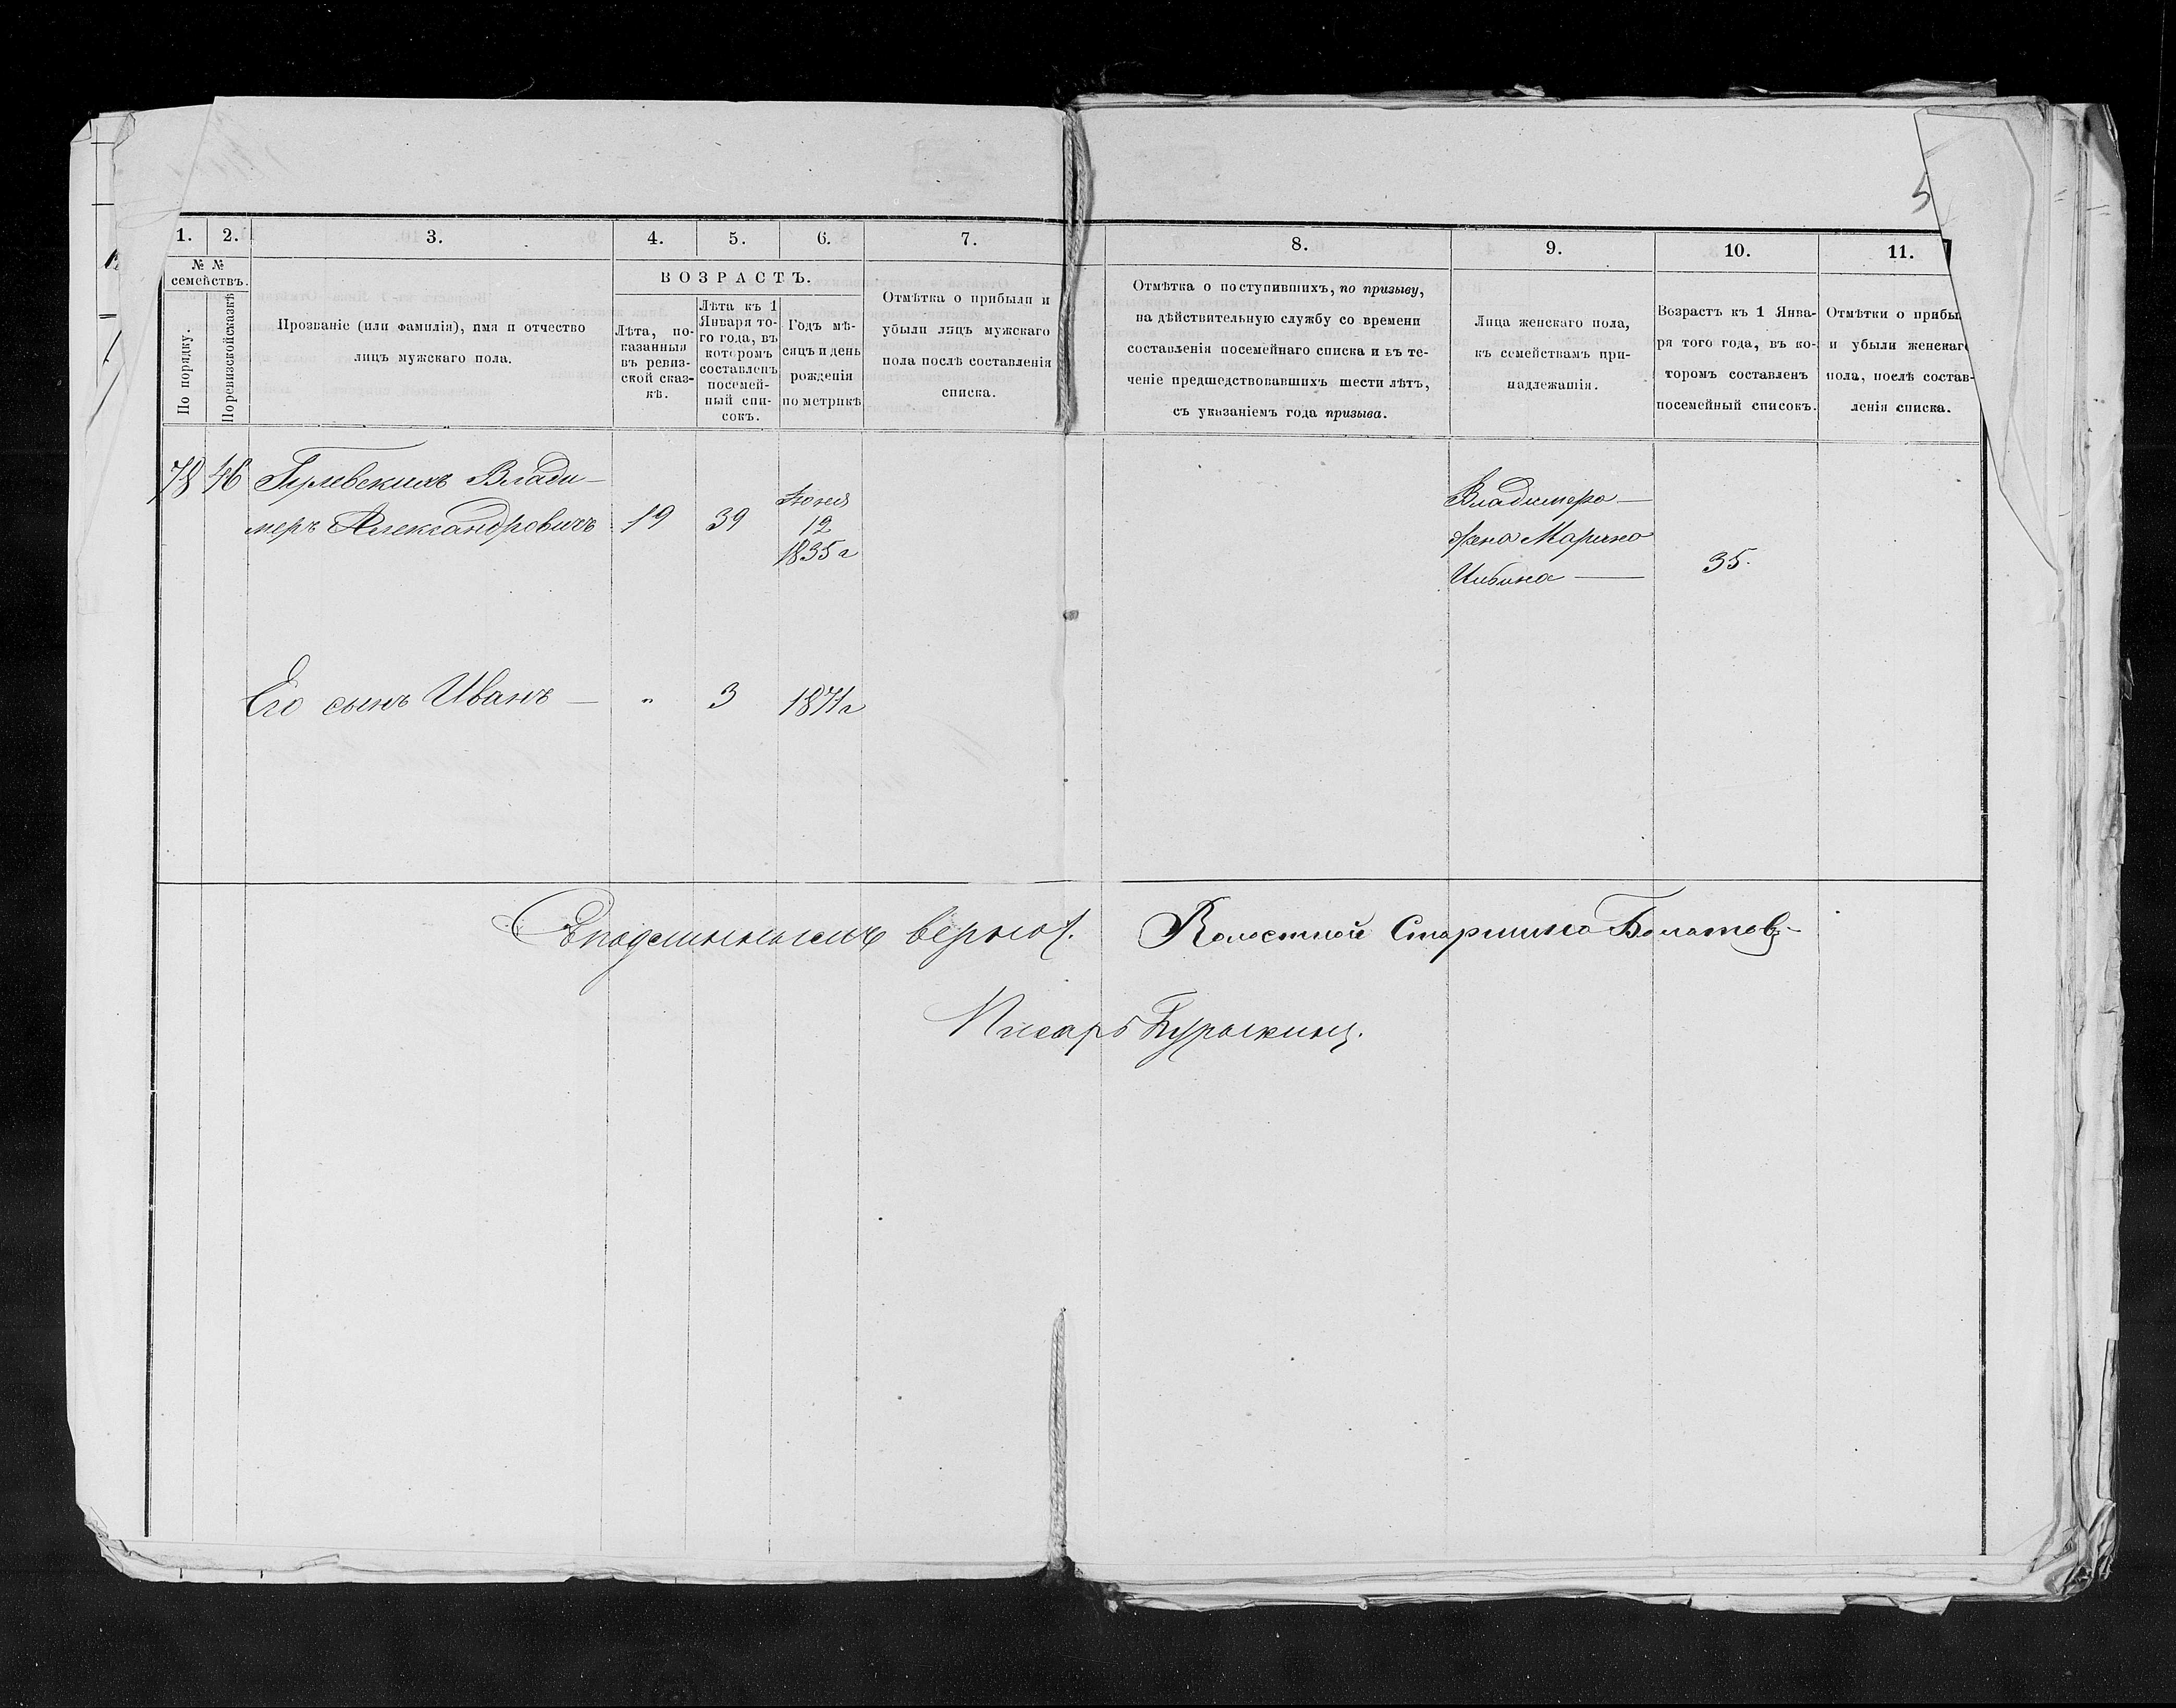 5
1.
2.
3.
4.
5.
6.
7.
8.
9.
10.
11.
№ №
семействъ.
По порядку.
По ревизской сказкѣ
Прозваніе (или фамилія), имя и отчество
лицъ мужскаго пола.
ВОЗРАСТЪ.
Лѣта, по-
казанныя
въ ревиз-
ской сказ-
кѣ.
Лѣта къ 1
Января то-
го года, въ
которомъ
составленъ
посемей-
ный спи-
сокъ.
Годъ мѣ-
сяцъ и день
рожденія
по метрикѣ
Отмѣтка о прибыли и
убыли лицъ мужскаго
пола послѣ составленія
списка.
Отмѣтка о поступившихъ, по призыву,
на дѣйствительную службу со времени
составленія посемейнаго списка и въ те-
ченіе предшедствовавшихъ шести лѣтъ,
съ указаніемъ года призыва.
Лица женскаго пола,
къ семействамъ при-
надлежащія.
Возрастъ къ 1 Янва-
ря того года, въ ко-
торомъ составленъ
посемейный списокъ.
Отмѣтки о прибы
и убыли женскаго
пола, послѣ состав-
ленія списка.
78 46 Влади-
меръ Александровичъ 19 39
Іюня
12
1835 г
Владимера
жена Марина
35.
Его сынъ Иванъ — " 3 1871 г
Съ подлиннымъ верно.
Волостной Старшина
Писарь